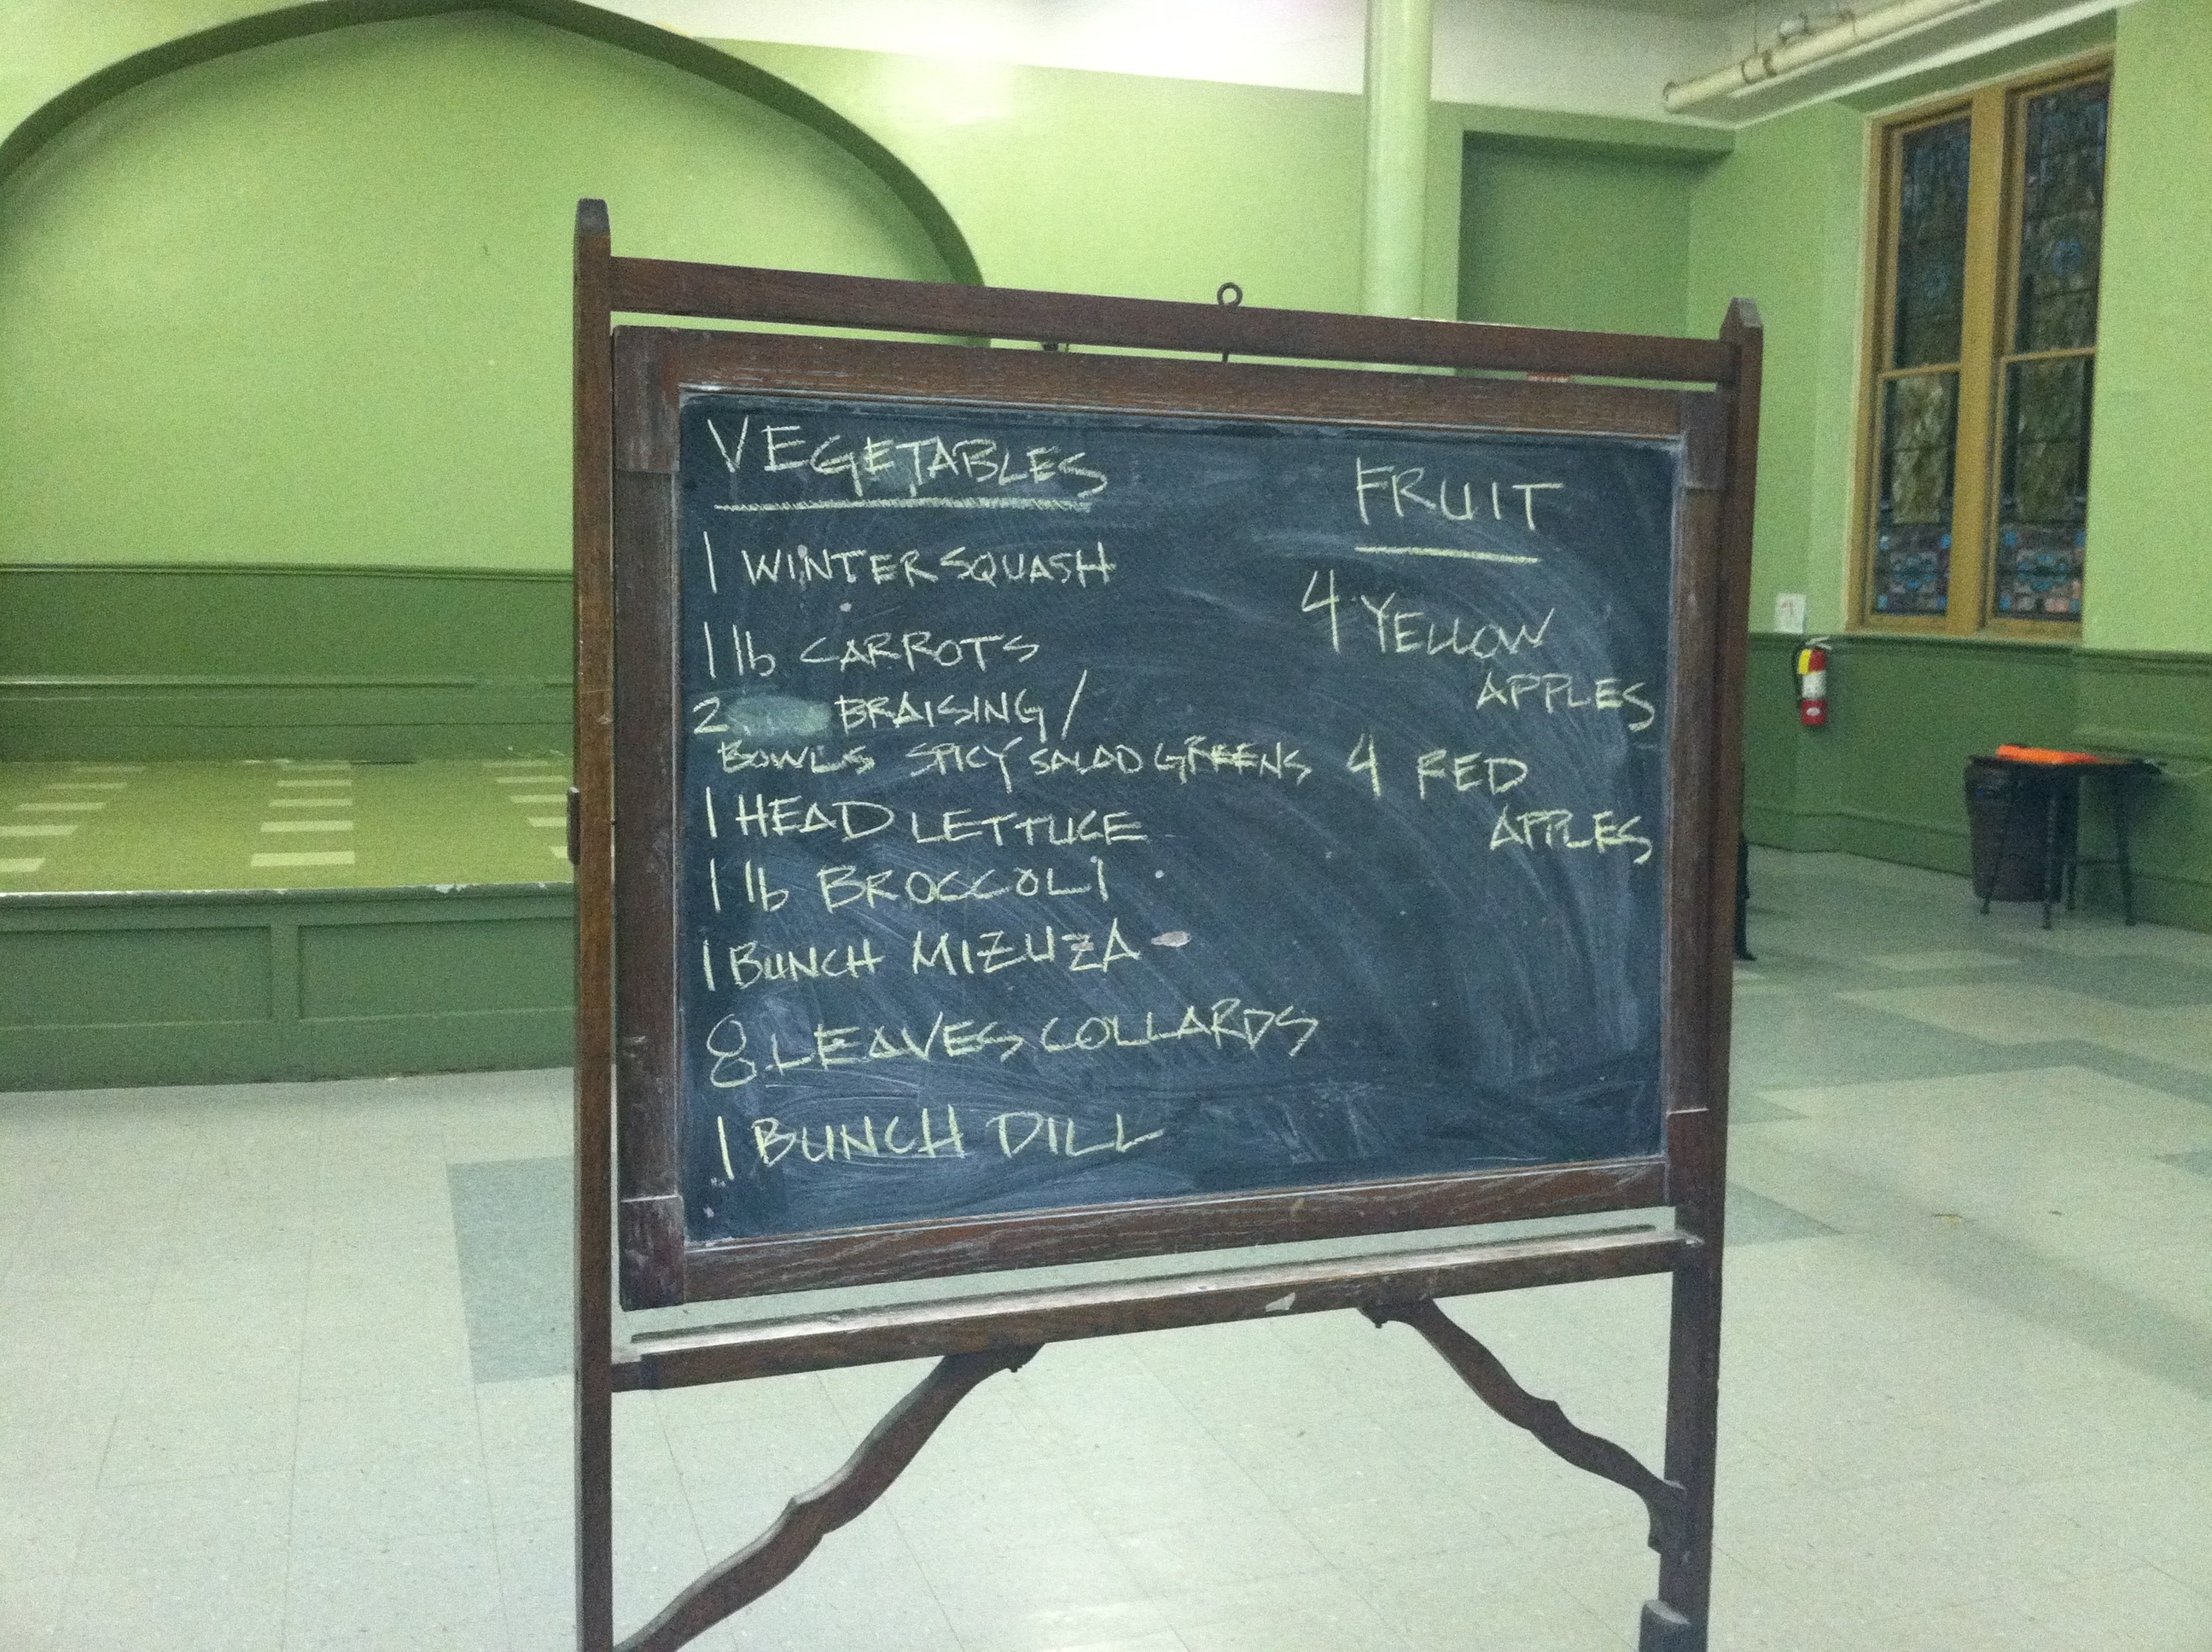 VEGETABLES
1 WINTER SQUASH
1 lb CARROTS
2 BRAISING /
BOWLS SPICY SALAD GREENS
1 HEAD LETTUCE
1 lb BROCCOLI
1 BUNCH MIZUZA
8 LEAVES COLLARDS
1 BUNCH DILL
FRUIT
4 YELLOW
APPLES
4 RED
APPLES